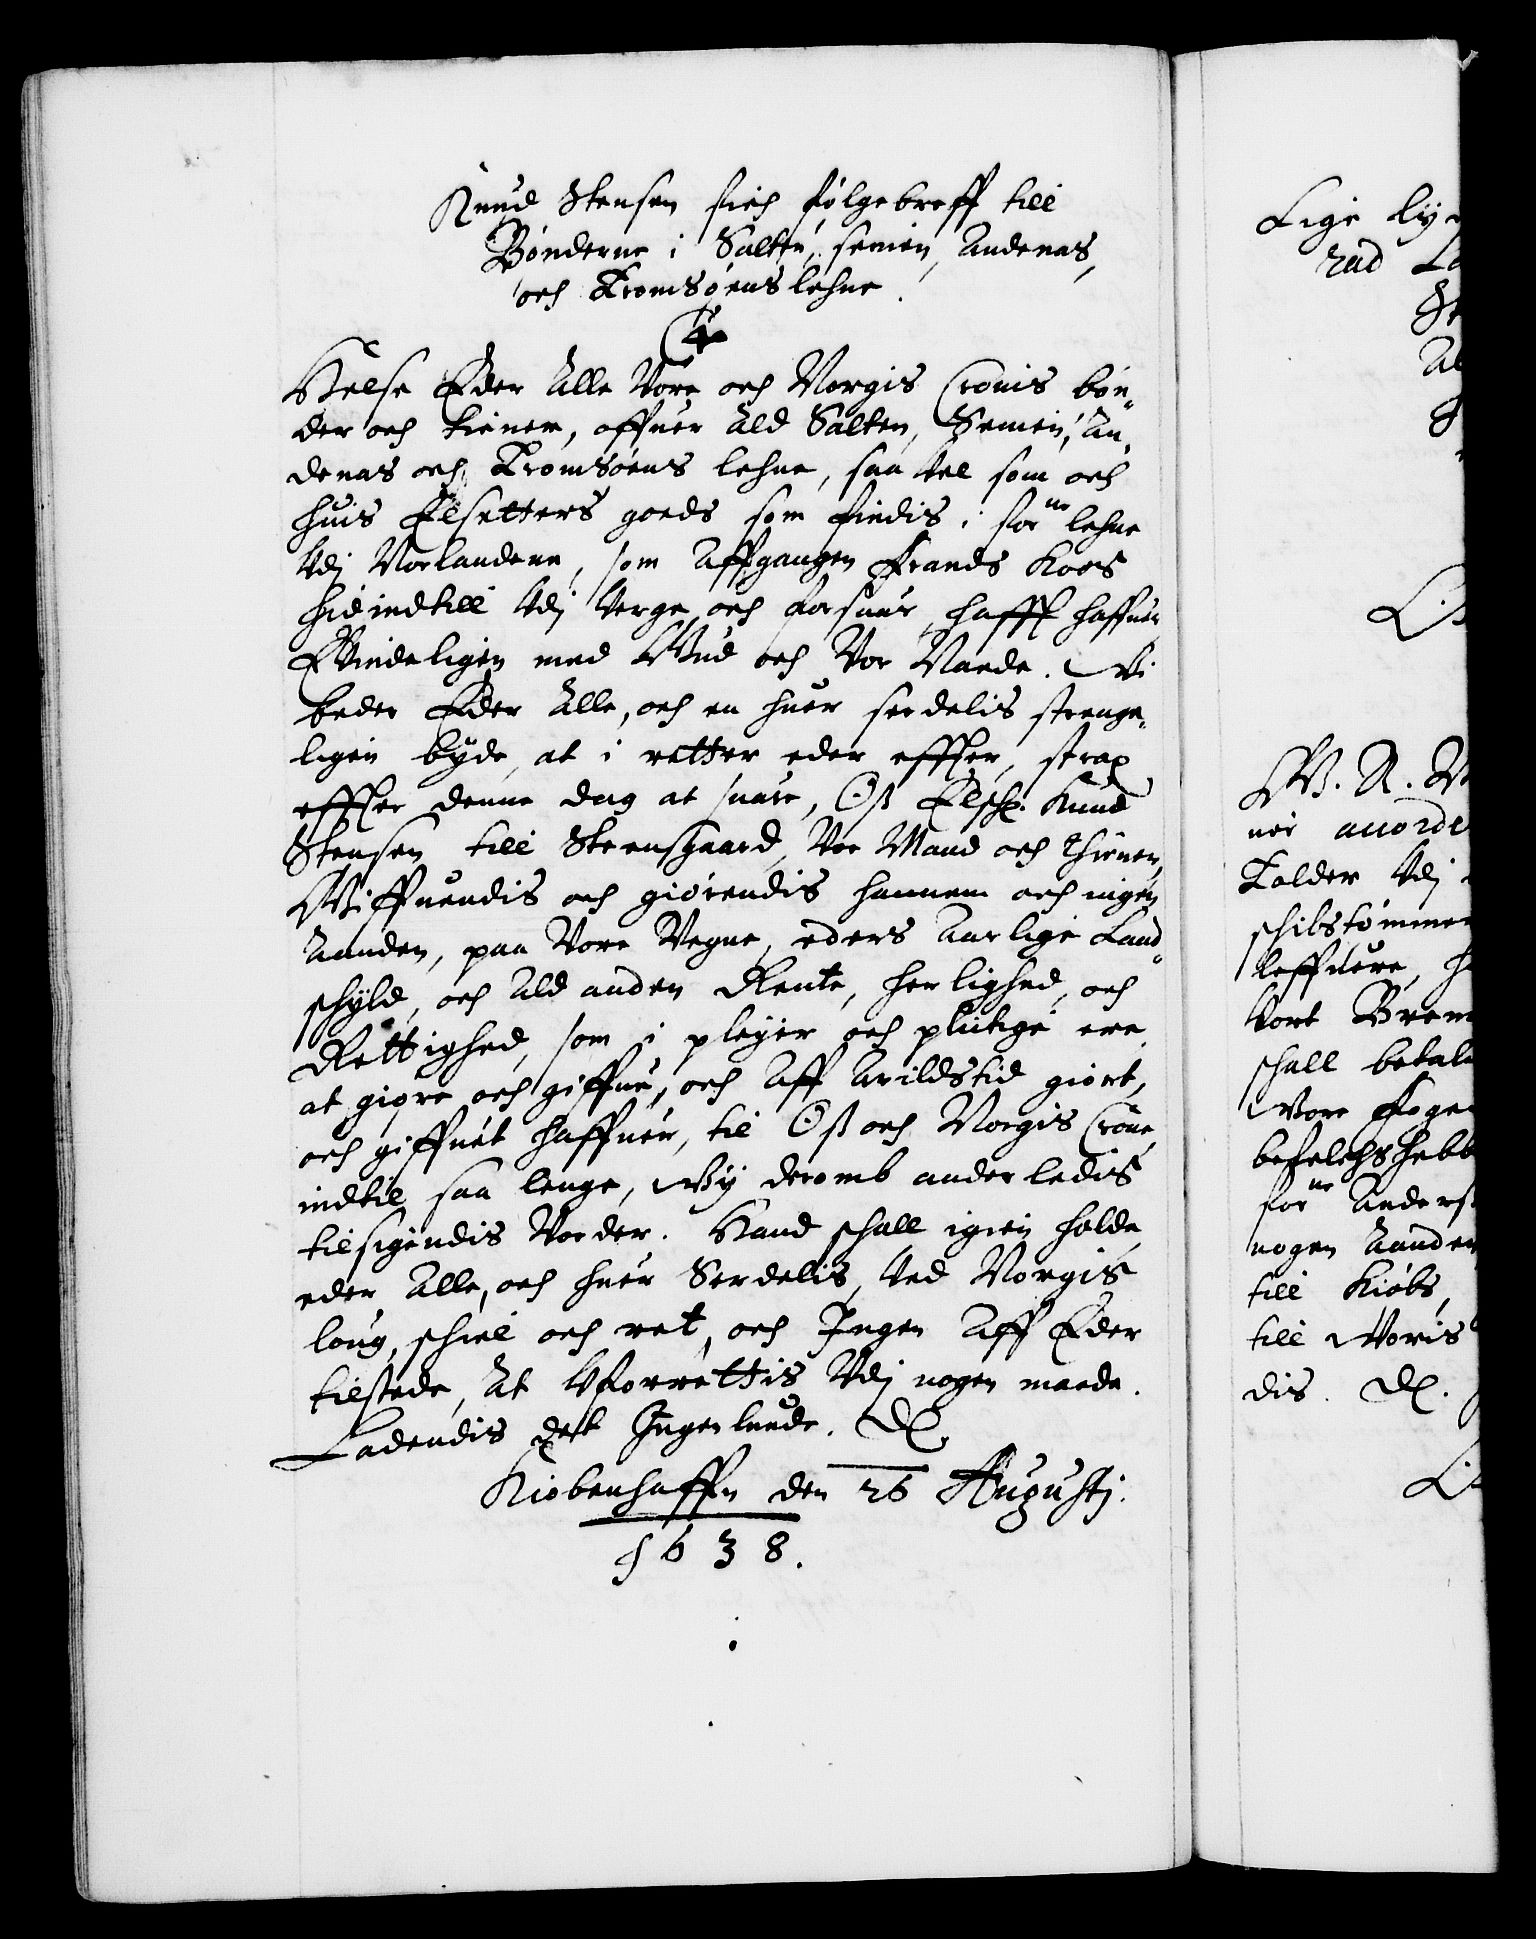 Knud Stensen fich følgebreff till
Bønderne i Salten, senien, Andenas,
och Tromsøens lehne.
Hilse Eder Alle Vore och Norgis Cronis bøn„
der och tiener, offuer Ald Salten, Senien, An„
denas och Tromsøens lehne, saa vel som och
huis Elsetters goeds som findis i forne lehne
Udj Norlandene, som Affgangen Frands Koos
hid indtill Udj Verge och forsuar hafft haffuer
Euindeligen med Gud och Vor Naade. Wi
beder Eder Alle, och en huer serdelis strenge„
ligen byde, at i retter eder effter, strax
effter denne dag at suare, Oss Elsch. Knud
Stensen till Steensgaard, Vor Mand och Thiener,
Giffuendis och giørendis hannem och ingen
Anden, paa Vore Vegne, eders Aarlige Land„
schyld, och Ald anden Rente, herlighed, och
Rettighed, som i pleyer och plictige ere
at giøre och giffue, och Aff Arildstid giort,
och giffuet haffuer, til Oss och Norgis Crone,
indtil saa lenge, Wij deromb anderledis
tilsigendis Vorder. Hand schall igien holde
eder Alle, och huer Serdelis, Ved Norgis
loug, schiel och ret, och Ingen Aff Eder
tilstede, At Uforrettis Udj nogen maade.
Ladendis dett Ingenlunde.
Kiøbenhaffn den 26 Augustj.
1638.
Lige
rad
W. A.
accorde
Tolder Udj
schibstømmer
leffuere,
Vort
schall betale
Wore
forne Anders
nogen Anden
till Kiøbs,
till Woris
dis.